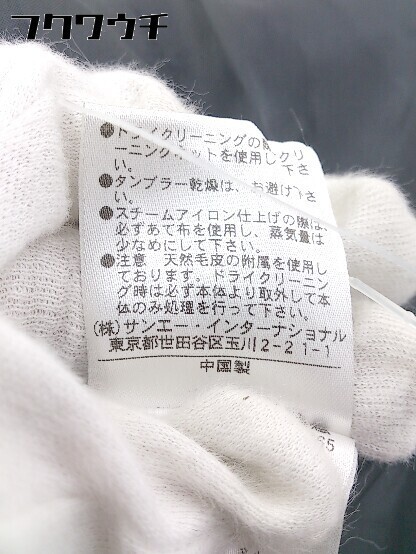 フクワウチ
●ドライクリーニングの際クリ
ーニングネットを使用し 下さ
い。
●タンブラー乾燥は、お避け下さ
い。
●スチームアイロン仕上げの際は、
必ずあて布を使用し、蒸気量は
少なめにして下さい。
●注意 天然毛皮の附属を使用し
ております。ドライクリーニン
グ時は必ず本体より取外して本
体のみ処理を行って下さい。
(株)サンエー・インターナショナル
東京都世田谷区玉川2-21-1
中国製